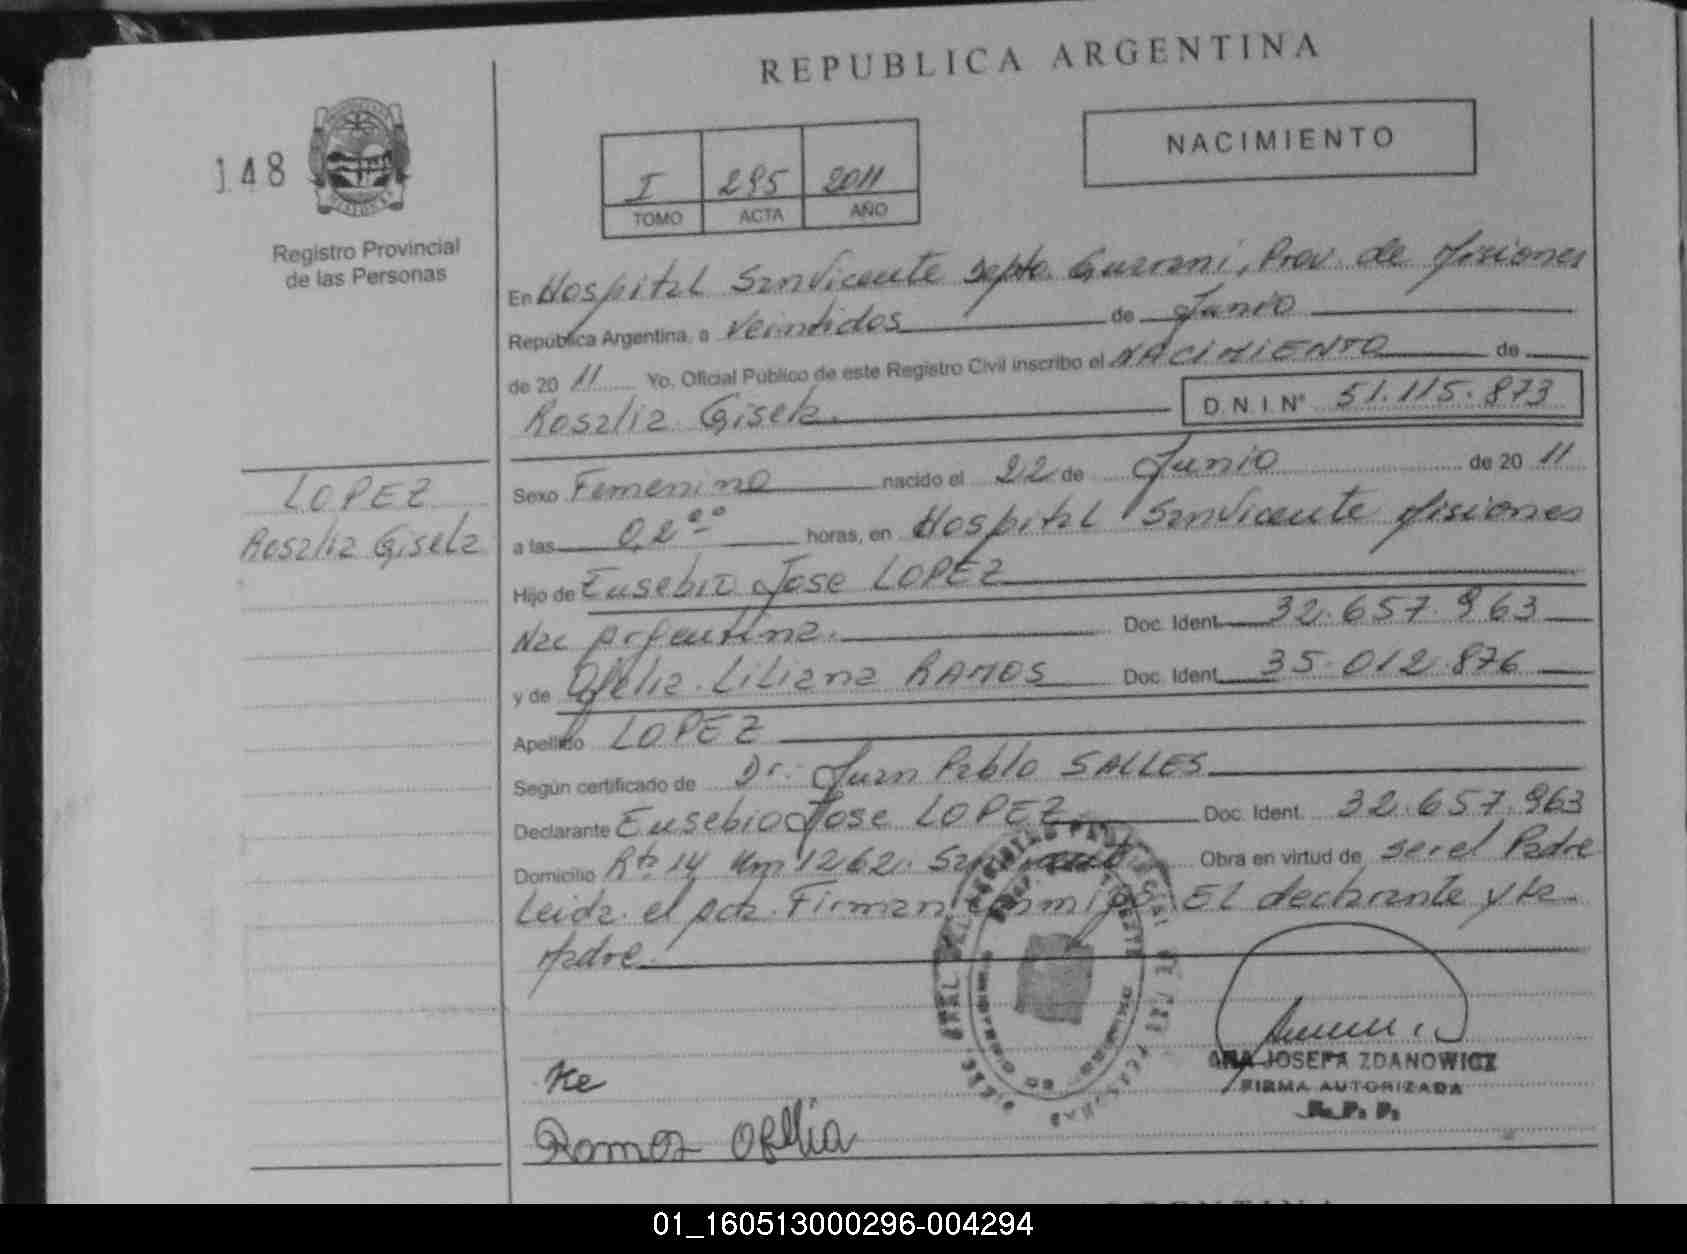 REPUBLICA ARGENTINA
148
Registro Provincial
de las Personas
I 295 2011
TOMO ACTA AÑO
NACIMIENTO
En Hospital San Vicente Depto. Guarani, Prov. de Misiones
República Argentina, a Veintidos de Junio
de 20 11 Yo, Oficial Público de este Registro Civil inscribo el NACIMIENTO de
Rosalia Gisela. D.N.I. Nº 51.115.873
LOPEZ
Rosalia Gisela
Sexo Femenino nacido el 22 de Junio de 20 11
a las 02 00 horas, en Hospital San Vicente Misiones
Hijo de Eusebio Jose LOPEZ
Nac Argentina. Doc. Ident. 32.657.963
y de Ofelia Liliana RAMOS Doc. Ident. 35.012.876
Apellido LOPEZ
Según certificado de Dr. Juan Pablo SALLES
Declarante Eusebio Jose LOPEZ Doc. Ident. 32.657.963
Domicilio Rta 14 Km 1262. San Obra en virtud de ser el Padre
Leida el Acta Firman conmigo El declarante y la
Madre
ANA JOSEFA ZDANOWICZ
FIRMA AUTORIZADA
R. P. P.
Ramos Ofelia
01_160513000296-004294